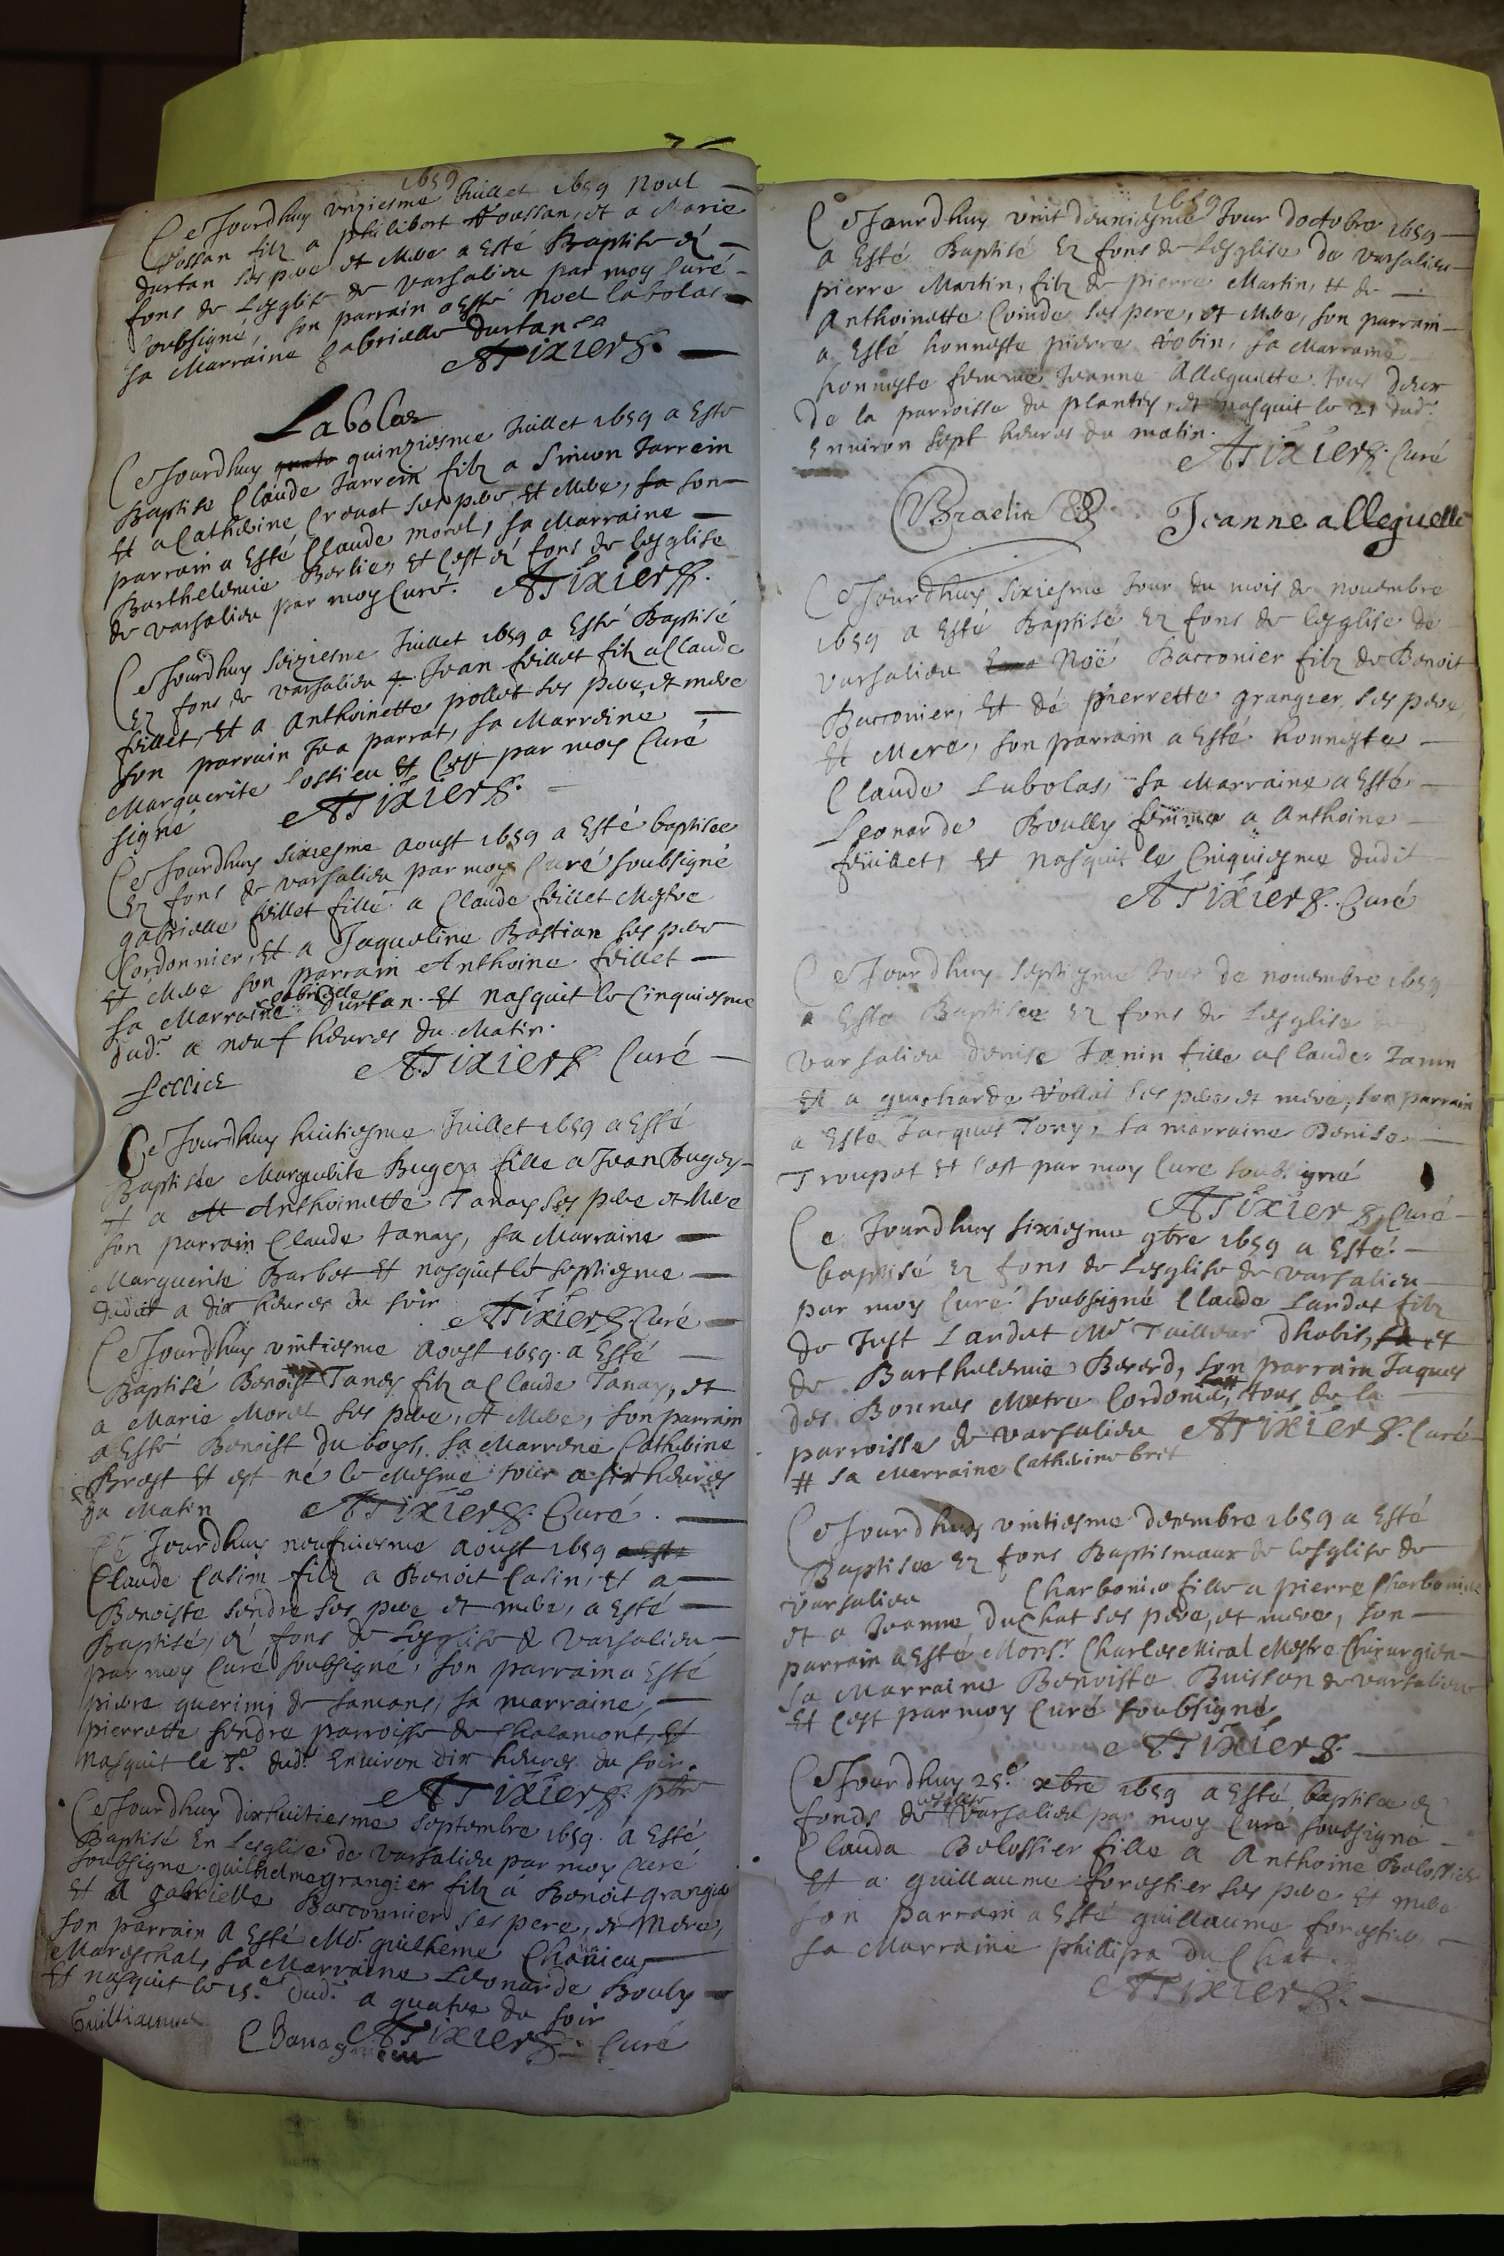 1659
Ce Jourdhuy unziesme Juillet 1659 Noel
Vossan filz a philibert Voussan, et a Marie
durtan ses pere et Mere a Esté Baptisé és
fons de Lesglise de varsalieu par moy Curé
soubsigné, son parrain a Esté Noel Labolas
sa Marraine Gabrielle durtan
ATixier
Labolas
Ce Jourdhuy quinziesme Juillet 1659 a Esté
Baptisé Claude Jarrein filz a Simon Jarrein
Et a Catherine Crouat ses pere Et Mere, son
parrain a Esté Claude morel, sa Marraine
Barthelemie Berlien Et C'est és fons de lesglise
de varsalieu par moy Curé. ATixier
Ce Jourdhuy seiziesme Juillet 1659 a Esté Baptisé
Ez fons de varsalieu Jean feillet filz a Claude
feillet, Et a Anthoinette pollet ses pere, et mere
son parrain Jea parrat, sa Marreine
Marguerite Et C'est par moy Curé
signé ATixier
Ce Jourdhuy sixiesme aoust 1659 a Esté baptisee
Ez fons de varsalieu par moy Curé soubsigné
gabrielle feillet fille a Claude feillet Mestre
Cordonnier, Et a Jaqueline Bastian ses pere
Et Mere son parrain Anthoine feillet
sa Marraine Gabrielle Durtan. Et nasquit le Cinquiesme
dud. a neuf heures du Matin.
ATixier Curé
Ce Jourdhuy huitiesme Juillet 1659 a Esté
Baptisée Marguerite Bugey fille a Jean Bugey
Et a Anthoinette Tanay ses pere et Mere
son parrain Claude tanay, sa Marraine
Marguerite Barbot Et nasquit le septiesme
dudit a dix heures du soir ATixier Curé
Ce Jourdhuy vintiesme Aoust 1659. a Esté
Baptisé Benoist Tanay filz a Claude Tanay, et
a Marie Morel ses pere, Et Mere, son parrain
a Esté Benoist du boys, sa Marrene Catherine
Brest Et est né le Mesme jour a six heures
du Matin ATixier Curé
Ce Jourdhuy neufuiesme aoust 1659
Claude Casim filz a Benoit Casin, Et a
Benoiste sendre ses pere et mere, a Esté
Baptisé, és fons de Lesglise de varsalieu
par moy Curé soubsigné, son parrain a Esté
pierre guerin, de samans, sa marraine,
pierrette sendre parroisse de Chalamont, Et
Nasquit le dud. Environ dix heures du soir.
ATixier pbre
Ce Jourdhuy dixhuitiesme septembre 1659. a Esté
Baptisé En Lesglise de varsalieu par moy Curé
soubsigne. guilhelme grangier filz a Benoit grangier
Et a gabrielle Barronnier ses pere, et Mere,
son parrain a Esté Mr. guilheme Chanieu
Mareschal, sa Marraine Leonarde Bouly
Et nasquit le 15e Dud. a quatre du soir
ATixier Curé
1659
Ce Jourdhuy vint deuxiesme Jour d'octobre 1659
a Esté Baptisé Ez fons de Lesglise de varsalieu
pierre Martin, filz de pierre Martin, Et de
Anthoinette Coinde ses pere, et Mere, son parrain
a Esté honneste pierre Vobin, sa Marraine
honneste femme Jeanne Alleguette. tous deux
de la parroisse du plantey, et nasquit le 21 dud.
Environ sept heures du matin.
ATixier. Curé
Jeanne alleguette
Ce Jourdhuy sixiesme Jour du mois de nouembre
1659 a Esté Baptisé Ez fons de lesglise de
varsalieu Noé Barronier filz de Benoit
Barronier, Et dé Pierrette grangier, ses pere,
Et Mere, son parrain a Esté honneste
Claude Labolas, sa Marraine a Esté
Leonarde Boully femme a Anthoine
feuillet, Et nasquit le Cinquiesme dudit
ATixier. Curé
Ce Jourdhuy septiesme Jour de nouembre 1659
a Esté Baptisee Ez fons de Lesglise de
varsalieu denise Janin fille a Claude Janin
Et a guicharde Vollat ses pere et mere, son parrain
a Esté Jacques Tony, sa marraine Denise
Troupat Et C'est par moy Curé soubsigné
ATixier, Curé
Ce Jourdhuy sixiesme 9bre 1659 a Esté
baptisé ez fons de Lesglise de varsalieu
par moy Curé soubsigné Claude Lardet filz
de Just Lardet Mr Tailleur d'habis, et
de Barthelemie Bererd, son parrain Jaques
des Bonnes Metre Cordonier, # tous de la
parroisse de varsalieu ATixier. Curé
# sa Marraine Catherine bret
Ce Jourdhuy vintiesme decembre 1659 a Esté
Baptisee Ez fons Baptismaux de lesglise de
varsalieu Charbonier fille a pierre Charbonier
et a Jeanne duChat ses pere, et mere, son
parrain a Esté Monsr. Charles Mical Mestre Chirurgien
sa Marraine Benoiste Buisson de varsalieu
Et C'est par moy Curé soubsigné
ATixier.
Ce Jourdhuy 25e xbre 1659 a Esté baptisee és
fonds de lesglise varsalieu par moy Curé soubsigné
Clauda Belossier fille a Anthoine Belossier
Et a guillaume forestier ses pere Et mere
son parrain a Esté guillaume forestier
sa Marraine phillipa du Chat.
ATixier.